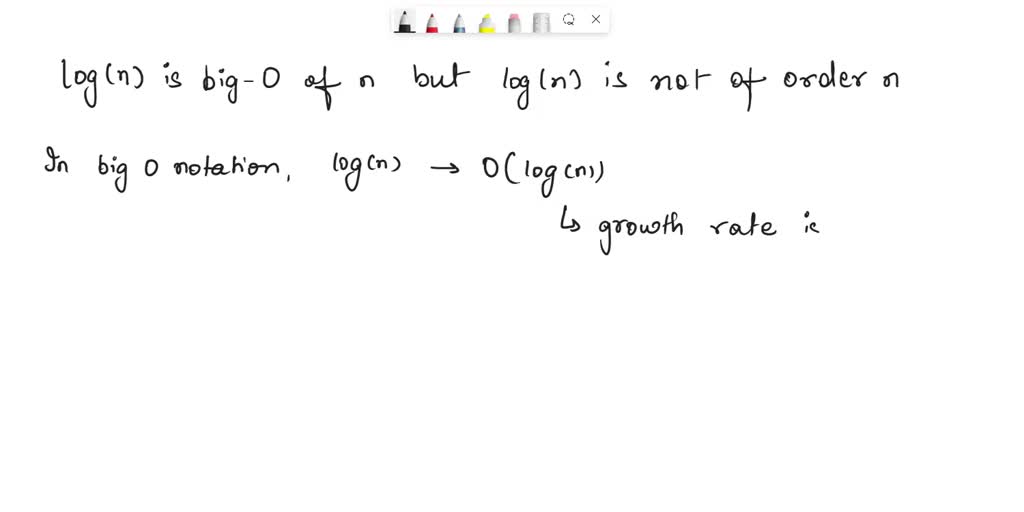 log(n) is big-O of n but log(n) is not of order n
In big O notation, log(n) → O(log(n))
↳ growth rate is